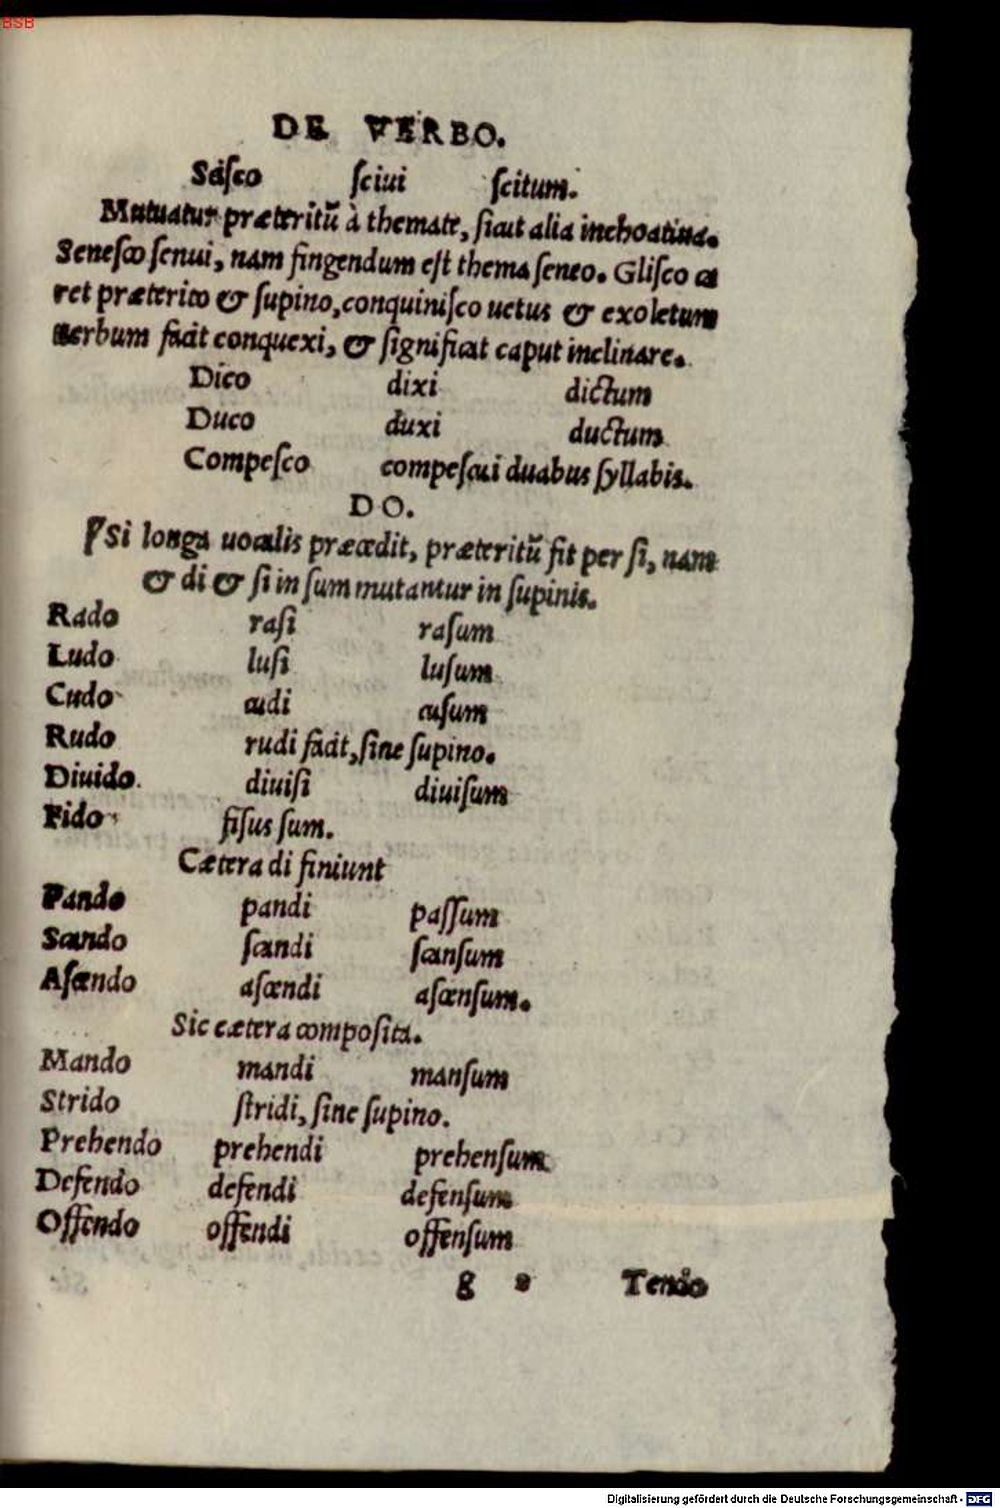 BSB
DE VERBO.
Sciſco ſciui ſcitum.
Mutuatur præteritũ à themate, ſicut alia inchoatiua.
Seneſco ſenui, nam fingendum eſt thema ſeneo. Gliſco ca
ret præterito & ſupino, conquiniſco uetus & exoletum
uerbum facit conquexi, & ſignificat caput inclinare.
Dico dixi dictum
Duco duxi ductum
Compeſco compeſcui duabus ſyllabis.
DO.
Si longa uocalis præcedit, præteritũ fit per ſi, nam
& di & ſi in ſum mutantur in ſupinis.
Rado raſi raſum
Ludo luſi luſum
Cudo cudi cuſum
Rudo rudi facit, ſine ſupino.
Diuido diuiſi diuiſum
Fido fiſus ſum.
Cætera di finiunt
Pando pandi paſſum
Scando ſcandi ſcanſum
Aſcendo aſcendi aſcenſum.
Sic cætera compoſita.
Mando mandi manſum
Strido ſtridi, ſine ſupino.
Prehendo prehendi prehenſum
Defendo defendi defenſum
Offendo offendi offenſum
g Tendo
Digitalisierung gefördert durch die Deutsche Forschungsgemeinschaft - DFG